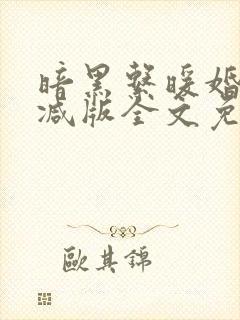 暗黑系暖婚
减版全文免
歐其錦